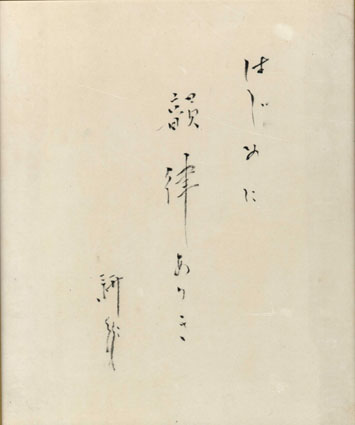 はじめに
韻律ありき